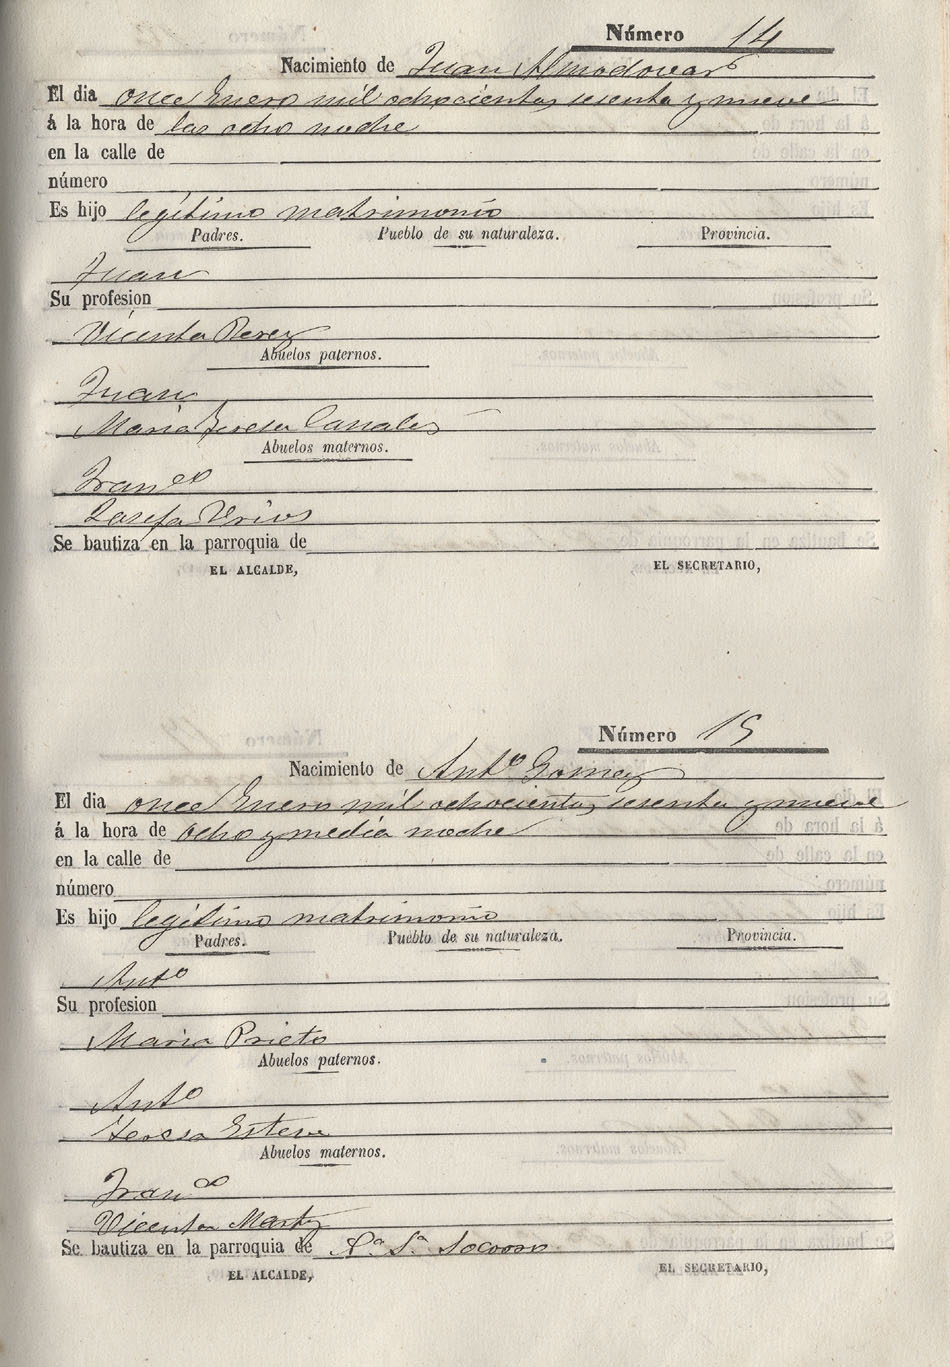 Número 14
Nacimiento de Juan Almodovar
El dia once Enero mil ochocientos sesenta y nueve
á la hora de las ocho noche
en la calle de
número
Es hijo legítimo matrimonio
Padres. Pueblo de su naturaleza. Provincia.
Juan
Su profesion
Vicenta Perez
Abuelos paternos.
Juan
Maria Teresa Canales
Abuelos maternos.
Franco
Josefa Urios
Se bautiza en la parroquia de
EL ALCALDE, EL SECRETARIO,
Número 15
Nacimiento de Anto Gomez
El dia once Enero mil ochocientos sesenta y nueve
á la hora de ocho y media noche
en la calle de
número
Es hijo legítimo matrimonio
Padres. Pueblo de su naturaleza. Provincia.
Anto
Su profesion
Maria Prieto
Abuelos paternos.
Anto
Teresa Esteve
Abuelos maternos.
Franco
Vicenta Martz
Se bautiza en la parroquia de Na Sa Socorro
EL ALCALDE, EL SECRETARIO,